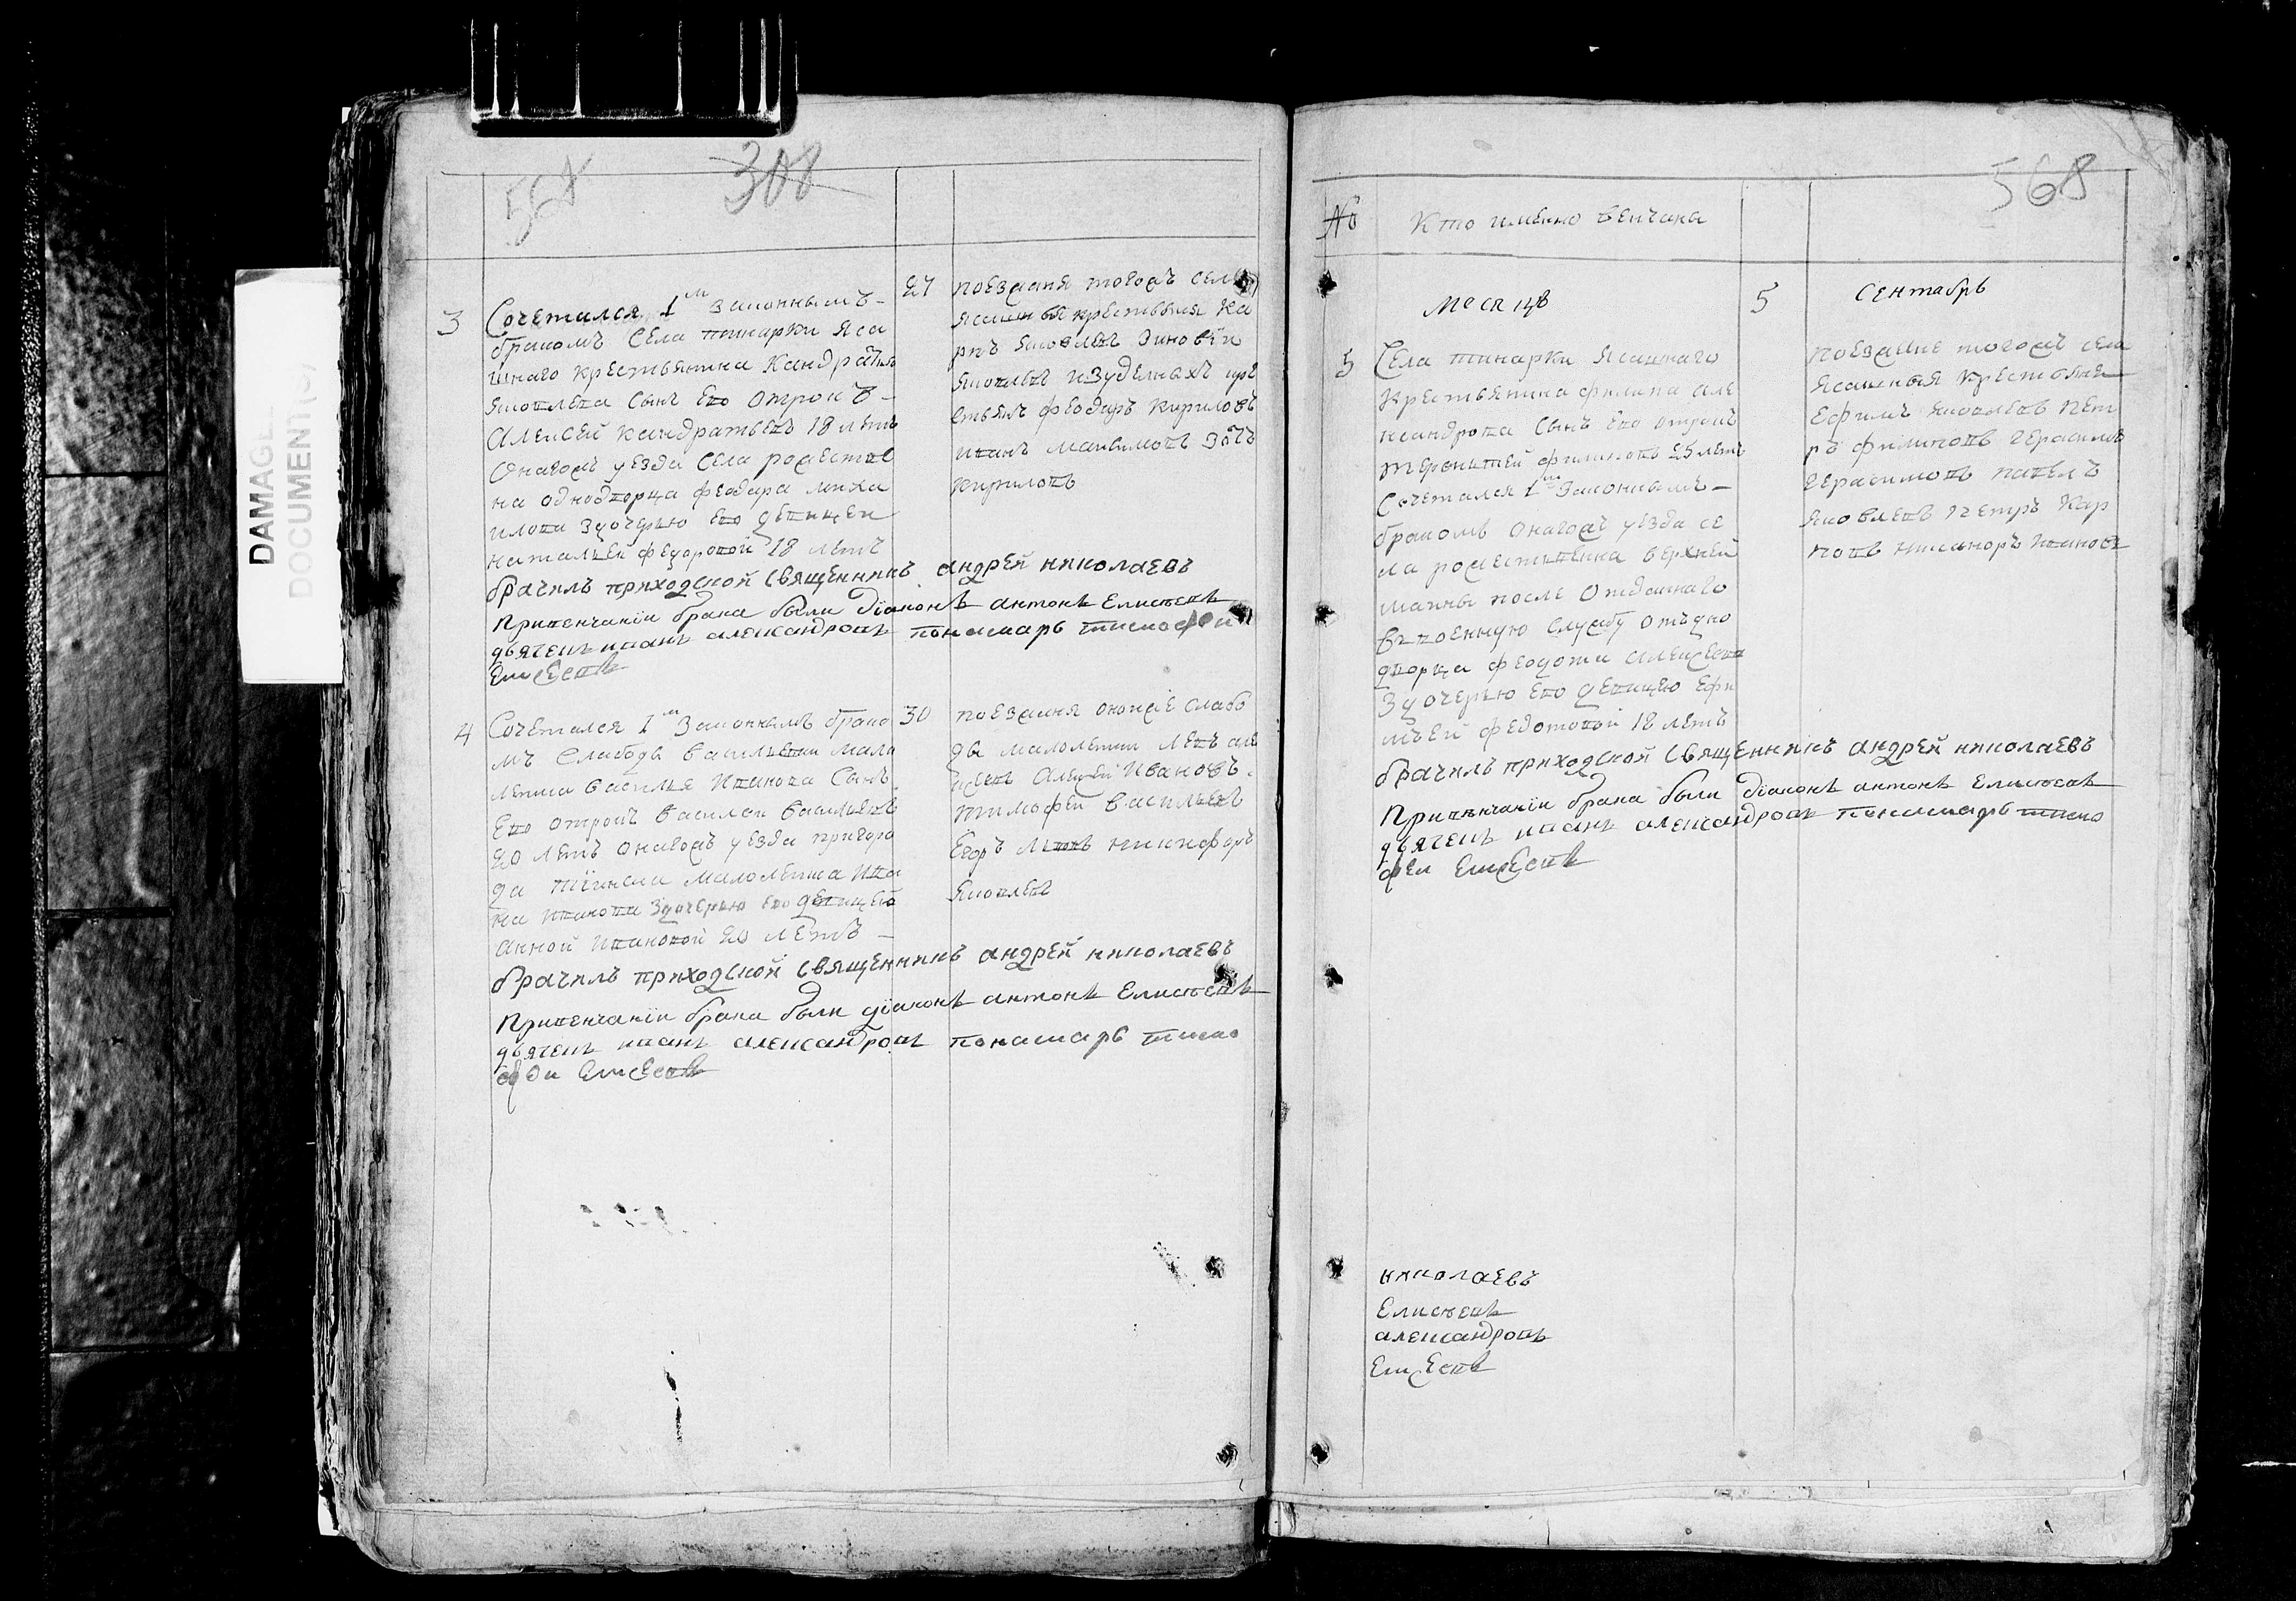 DAMAGE
DOCUMENT(S)
568
308
3
Сочетался 1м законнымъ
бракомъ Села тинарки Яса
шнаго крестьянина Кандратья
Яковлева Сынъ Ево отрокъ
Алексей Кандратьевъ 18 летъ
Онагожъ уезда Села рожестве
на однодворца Феодара Миха
илова здочерью Ево девицеи
натальей федоровой 18 летъ
27
поезжаня тогожъ села
Ясашныя крестьяня Ка
рпъ Яковлевъ Зиновъи
Яковлевъ изуделныхъ кре
стьянъ Феодаръ Кириловъ
иванъ Максимовъ
Кириловъ
брачилъ приходской Священникъ андрей николаевъ
Привенчании брака были діаконъ антонъ Елисеевъ
дьячекъ иванъ александровъ понамарь тимофеи
Елисеевъ
4
Сочетался 1м Законнымъ брако
мъ Слабоды Васильевки мало
летка василья Иванова Сынъ
Ево отрокъ Василеи Васильевъ
20 летъ Онагожъ уезда пригоро
да тиинска малолетка Ива
на Иванова здочерью ево девицей
анной Ивановой 20 летъ
30
поезжаня онойже слабо
ды малолетки Левъ але
ксеевъ Алексей Ивановъ
тимофей васильевъ
Егоръ Львовъ никифоръ
Яковлевъ
брачилъ приходской Священникъ андрей николаевъ
Привенчании брака были діаконъ антонъ Елисеевъ
дьячекъ иванъ александровъ понамарь тимо
феи Елисеевъ
568
№
Кто имено венчана
Месяцъ
5
Сентябрь
5
Села тинарки Ясашнаго
Крестьянина филипа але
ксандрова Сынъ Ево отрокъ
терентей филиповъ 25 летъ
Сочетался 1м Законнымъ
бракомъ Онагожъ уезда се
ла рожественна верхней
маины после Отданнаго
въ военную Службу отъ одно
дворца Феодота алексеева
Здочерью Ево девицею Ефи
мьей федотовой 18 летъ
поезжане тогожъ села
Ясашныя Крестьяня
Ефимъ Яковлевъ Пет
ръ филиповъ герасимъ
герасимовъ павелъ
Яковлевъ петръ Кар
повъ никаноръ Ивановъ
брачилъ приходской Священникъ андрей николаевъ
Привенчании брака были діаконъ антонъ Елисеевъ
дьячекъ иванъ александровъ понамарь тимо
феи Елисеевъ
николаевъ
Елисеевъ
александровъ
Елисеевъ